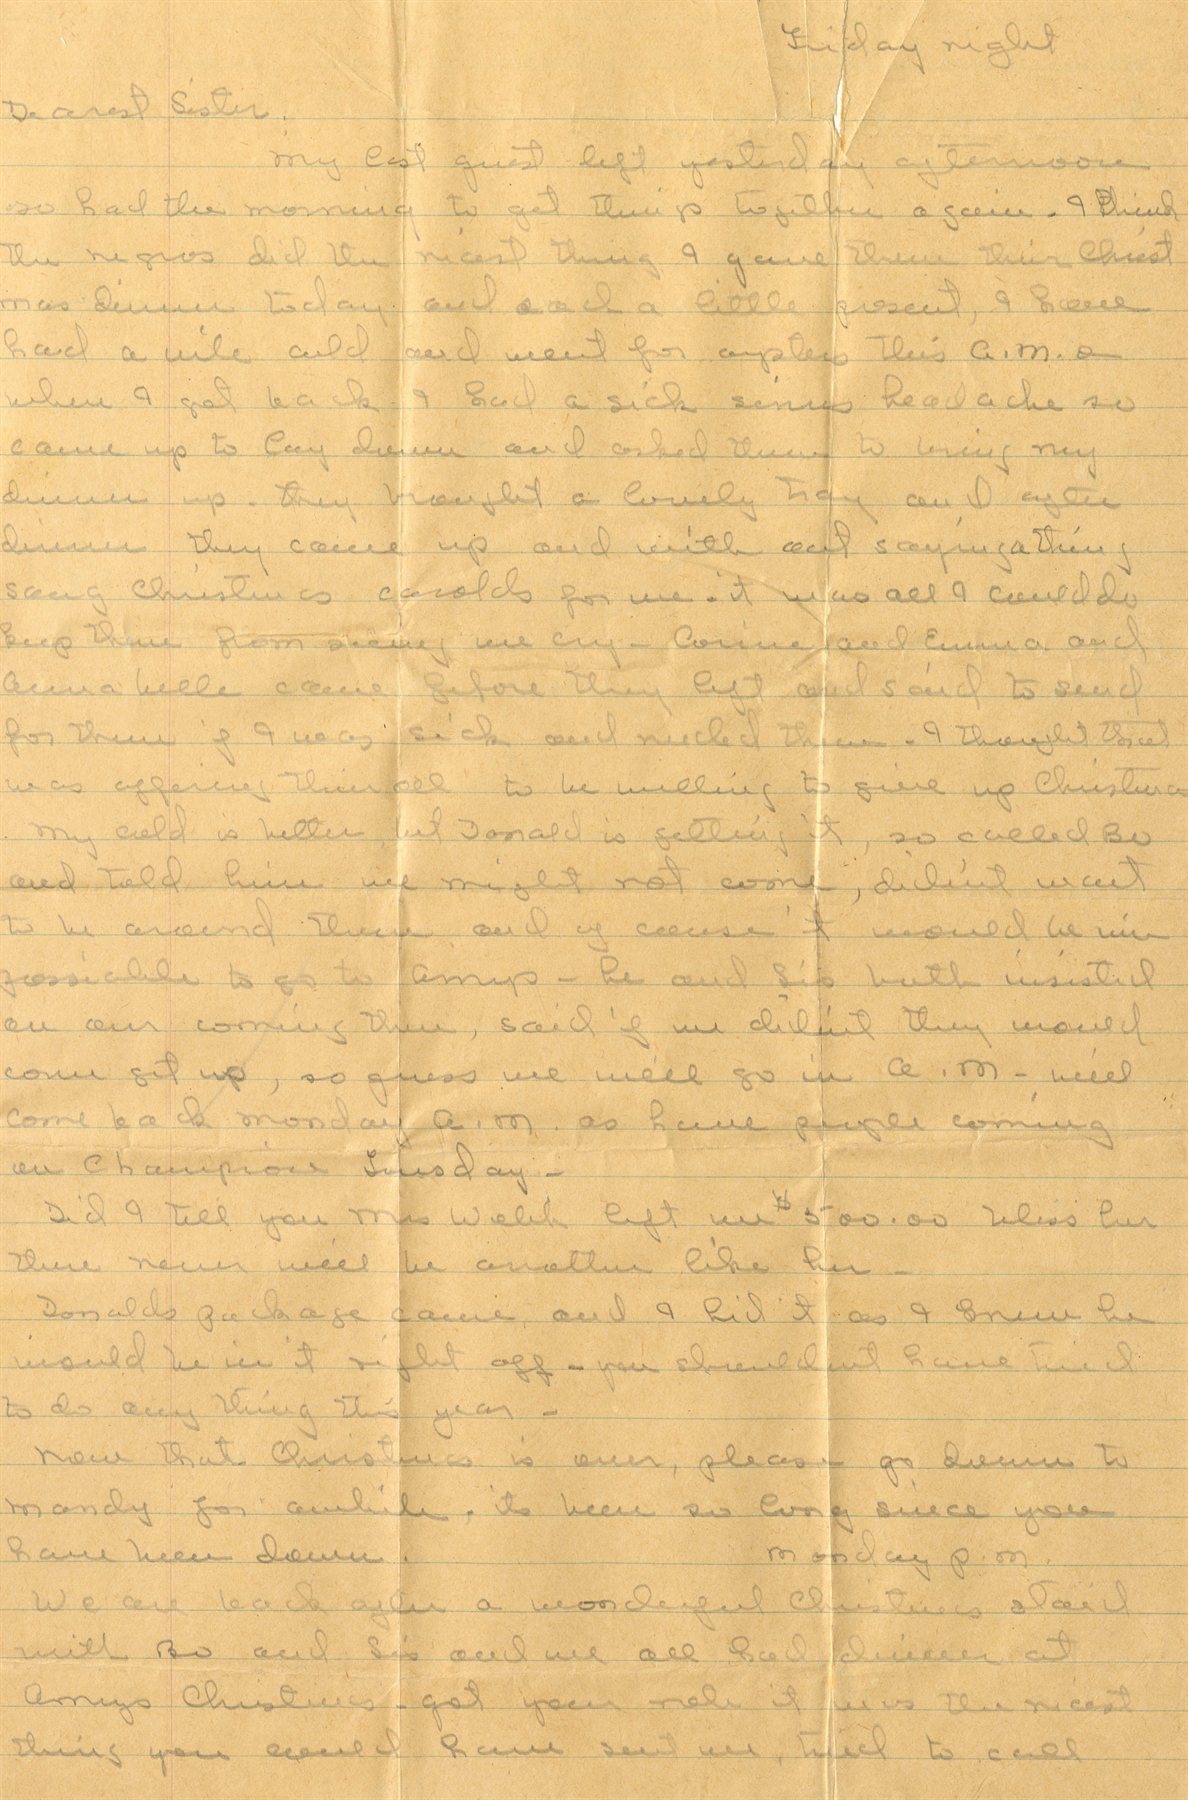 Friday night
Dearest Sister.
My last guest left yesterday afternoon
so had the morning to get things together again. I think
the negros did the nicest thing I gave them their Christ
mas dinner today and each a little present, I have
had a vile cold and went for oysters this a.m. &
when I got back I had a sick sinus headache so
came up to lay down and asked them to bring my
dinner up. they brought a lovely tray and after
dinner they came up and with out saying a thing
sang Christmas carolds for me. it was all I could do
keep them from seeing me cry - Corine and Emma and
Anna belle came before they left and said to send
for them if I was sick and needed them. I thought that
was offering their all to be willing to give up Christmas
. My cold is better, but Donald is getting it, so called Bo
and told him we might not come, did'nt want
to be around them and of course it would be im
possiable to go to Amys - he and Sis both insisted
on our coming then, said if we did'nt they would
come get us, so guess we will go in a.m - will
come back Monday a.m. as have people coming
on Champion Tuesday -
Did I tell you Mrs Welch left me $500.00 bless her
there never will be another like her -
Donalds package came, and I hid it as I knew he
would be in it right off - you should'nt have tried
to do any thing this year -
Now that Christmas is over, please go down to
Mandy for awhile, its been so long since you
have been down. Monday p.m.
We are back after a wonderful Christmas staid
with Bo and Sis and we all had dinner at
Amys Christmas - got your note it was the nicest
thing you could have sent me, tried to call